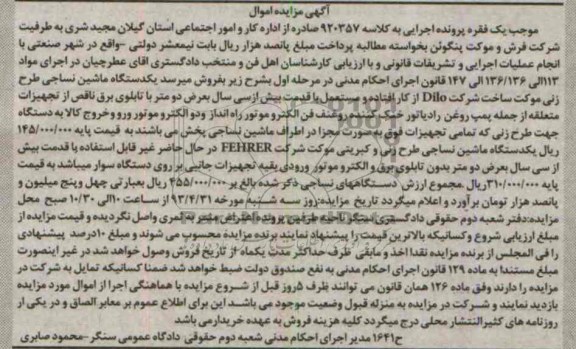 آگهی مزایده اموال
بموجب یک فقره پرونده اجرایی به کلاسه ۹۲۰۳۵۷ صادره از اداره کار و امور اجتماعی استان گیلان مجید شری به طرفیت
شرکت فرش و موکت پنگوئن بخواسته مطالبه پرداخت مبلغ پانصد هزار ریال بابت نیمعشر دولتی -واقع در شهر صنعتی با
انجام عملیات اجرایی و تشریفات قانونی و با ارزیابی کارشناسان اهل فن و منتخب دادگستری اقای عطرچیان در اجرای مواد
۱۱۳الی ۱۳۶/۱۲۶ الی ۱۴۷ قانون اجرای احکام مدنی در مرحله اول بشرح زیر بفروش میرسد یکدستگاه ماشین نساجی طرح
زنی موکت ساخت شرکت Dilo از کار افتاده با قدمت بیش ازسی سال بعرض دو متر با تابلوی برق ناقص از تجهیزات
متعلقه از جمله پمپ روغن رادیاتور خنک کننده روغنف فن الکترو موتور راه انداز ودو الکترو موتور ورو وخروج کالا به دستگاه
جهت طرح زنی که تمامی تجهیزات فوق به صورت مجزا در اطراف ماشین نساجی پخش می باشند به قیمت پایه ۱۴۵/۰۰۰/۰۰۰
ریال یکدستگاه ماشین نساجی طرح زنی و کبریتی موکت شرکت FEHRER در حال حاضر غیر قابل استفاده با قدمت بیش
از سی سال بعرض دو متر بدون تابلوی برق و الکترو موتور ورودی بقیه تجهیزات جانبی بر روی دستگاه سوار میباشد به قیمت
پایه ۳۱۰/۰۰۰/۰۰۰ریال .مجموع ارزش دستگاههای نساجی ذکر شده بالغ بر ۴۵۵/۰۰۰/۰۰۰ ریال بعبارتی چهل وپنج میلیون و
پانصد هزار تومان برآورد و اعلام میگردد تاریخ مزایده:روز سه شنبه مورخه ۹۳/۴/۳۱ از ساعت ۱۰الی ۱۰/۳۰ صبح محل
مزایده:دفتر شعبه دوم حقوقی دادگستری سنگر واصل نگردیده و قیمت مزایده از
مبلغ ارزیابی شروع وکسانیکه بالاترین قیمت را پیشنهاد نمایند برنده مزایده محسوب می شوند و مبلغ ۱۰درصد پیشنهادی
را فی المجلس از برنده مزایده نقدا اخذ و مابقی ظرف حداکثر مدت یکماه از تاریخ فروش وصول خواهد شد در غیر اینصورت
مبلغ مستندا به ماده ۱۲۹ قانون اجرای احکام مدنی به نفع صندوق دولت ضبط خواهد شد ضمنا کسانیکه تمایل به شرکت در
مزایده را دارند وفق ماده ۱۲۶ همان قانون می توانند ظرف ۵روز قبل از شروع مزایده با هماهنگی اجرا از اموال مورد مزایده
بازدید نمایند و شرکت در مزایده به منزله قبول وضعیت موجود می باشد این برای اطلاع عموم بر معابر الصاق و در یکی از
روزنامه های کثیرالانتشار محلی درج میگردد کلیه هزینه فروش به عهده خریدارمی باشد
ح۱۶۴۱ مدیر اجرای احکام مدنی شعبه دوم حقوقی دادگاه عمومی سنگر -محمود صابری